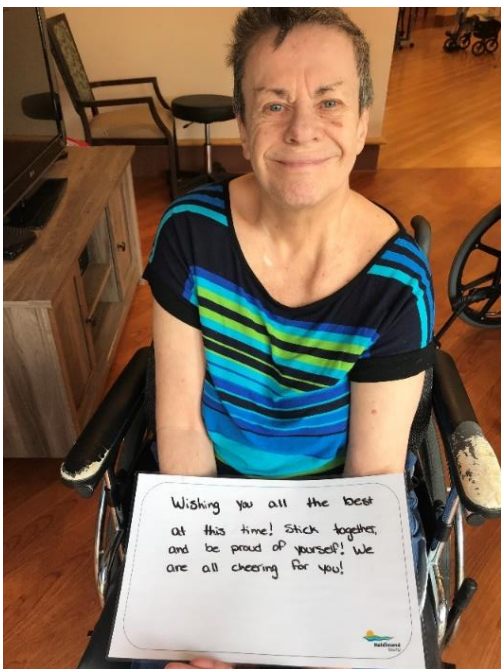 Wishing you all the best
at this time! Stick together,
and be proud of yourself! We
are all cheering for you!
Haldimand
County